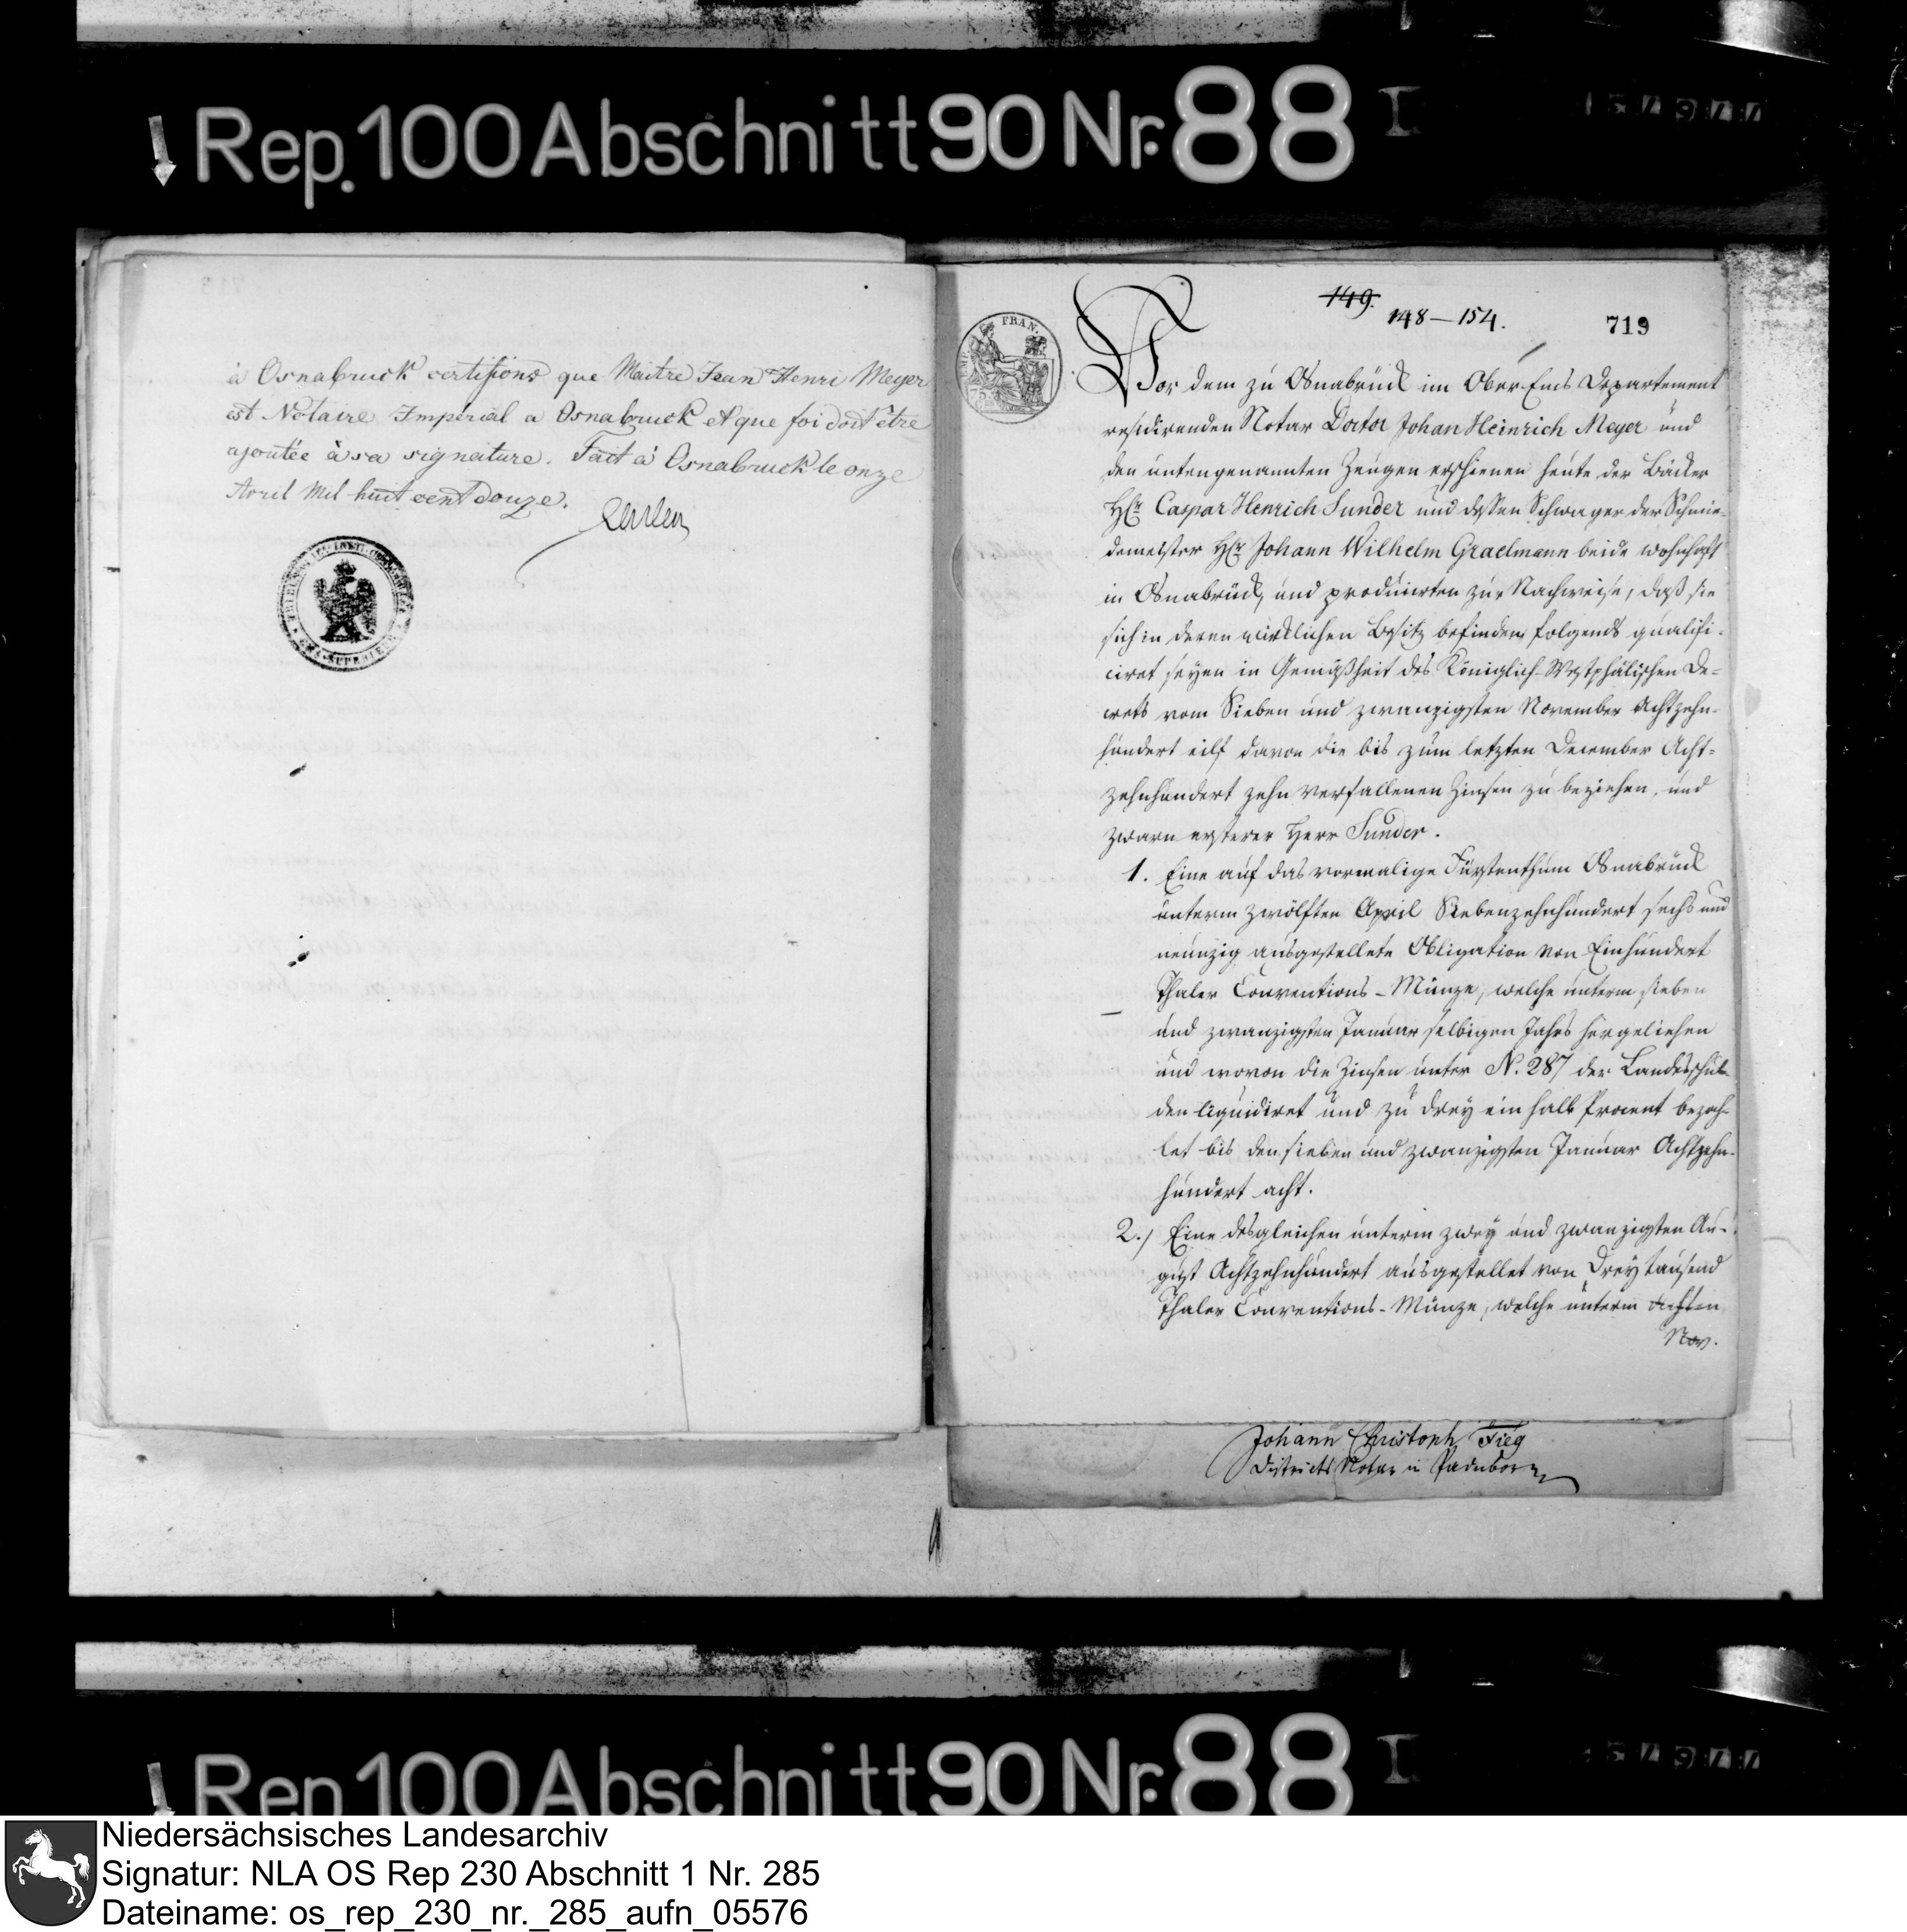 Rep. 100 Abschnitt 90 Nr. 88 I
à Osnabruck certifions que Maitre Jean Henri Meyer
est Notaire Imperial a Osnabruck et que foi doit être
ajoutée à sa signature. Fait à Osnabruck le onze
Avril Mil huit cent douze.
149.
148 – 154.
719
FRAN.
Vor dem zu Osnabrück im Ober-Ems Departement
residirenden Notar Doctor Johan Heinrich Meyer und
den untengenannten Zeugen erschienen heute der Bäcker
Hr Caspar Henrich Sunder und dessen Schwager der Schmie-
demeister Hr Johann Wilhelm Graelmann beide wohnhaft
in Osnabrück, und producirten zur Nachweise, daß sie
sich in deren wirklichen Besitz befinden, folgends qualifi-
ciret seyen in Gemäßheit des Königlich-Westphälischen De-
crets vom Sieben und zwanzigsten November Achtzehn-
hundert eilf davon die bis zum letzten December Acht-
zehnhundert zehn verfallenen Zinsen zu beziehen, und
zwarn ersterer Herr Sunder.
1. Eine auf das vormalige Fürstenthum Osnabrück
unterm zwölften April Siebenzehnhundert sechs und
neunzig ausgestellete Obligation von Einhundert
Thaler Conventions-Münze, welche unterm sieben
und zwanzigsten Januar selbigen Jahrs hergeliehen
und wovon die Zinsen unter N. 287 der Landesschul-
den liquidiret und zu drey ein halb Procent bezah-
let bis den sieben und zwanzigsten Januar Achtzehn-
hundert acht.
2.) Eine desgleichen unterm zwey und zwanzigsten Au-
gust Achtzehnhundert ausgestellet von Dreytausend
Thaler Conventions-Münze, welche unterm achten
Nov.
Johann Christoph Fieg
Districts Notar in Paderborn
Rep. 100 Abschnitt 90 Nr. 88 I
Niedersächsisches Landesarchiv
Signatur: NLA OS Rep 230 Abschnitt 1 Nr. 285
Dateiname: os_rep_230_nr._285_aufn_05576